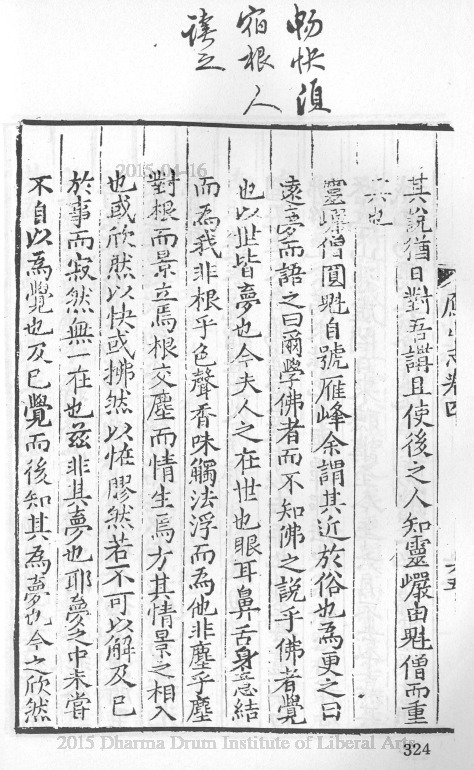 暢快須
宿根人
讀之
其說猶日對吾講且使後之人知靈巖由魁僧而重
其也
靈巖僧圓魁自號雁峰余謂其近於俗也爲更之曰
遠夢而語之曰爾學佛者而不知佛之說乎佛者覺
也以世皆夢也今夫人之在世也眼耳鼻舌身意結
而爲我非根乎色聲香味觸法浮而爲他非塵乎塵
對根而景立焉根交塵而情生焉方其情景之相入
也或欣然以快或拂然以恠膠然若不可以解及已
於事而寂然無一在也茲非其夢也耶夢之中未嘗
不自以爲覺也及已覺而後知其爲夢也今之欣然
2015-04-16
2015 Dharma Drum Institute of Liberal Arts
324